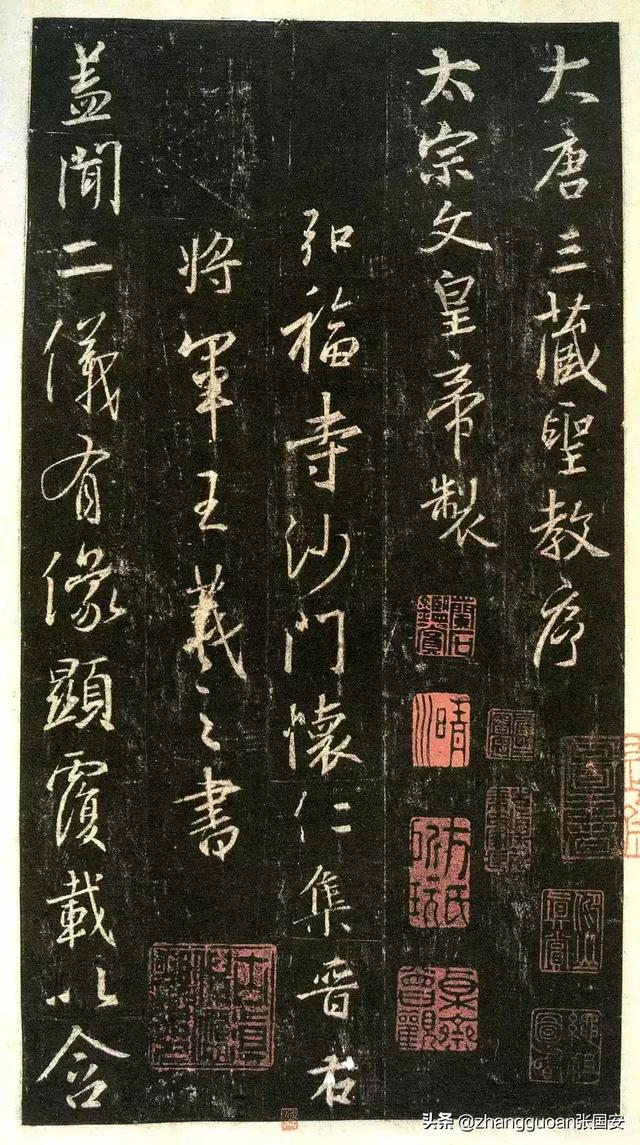 大唐三藏聖教序
太宗文皇帝製
弘福寺沙門懷仁集晉右
將軍王羲之書
蓋聞二儀有像顯覆載以含
蘭石
晴川
頭条@zhangguoan张国安